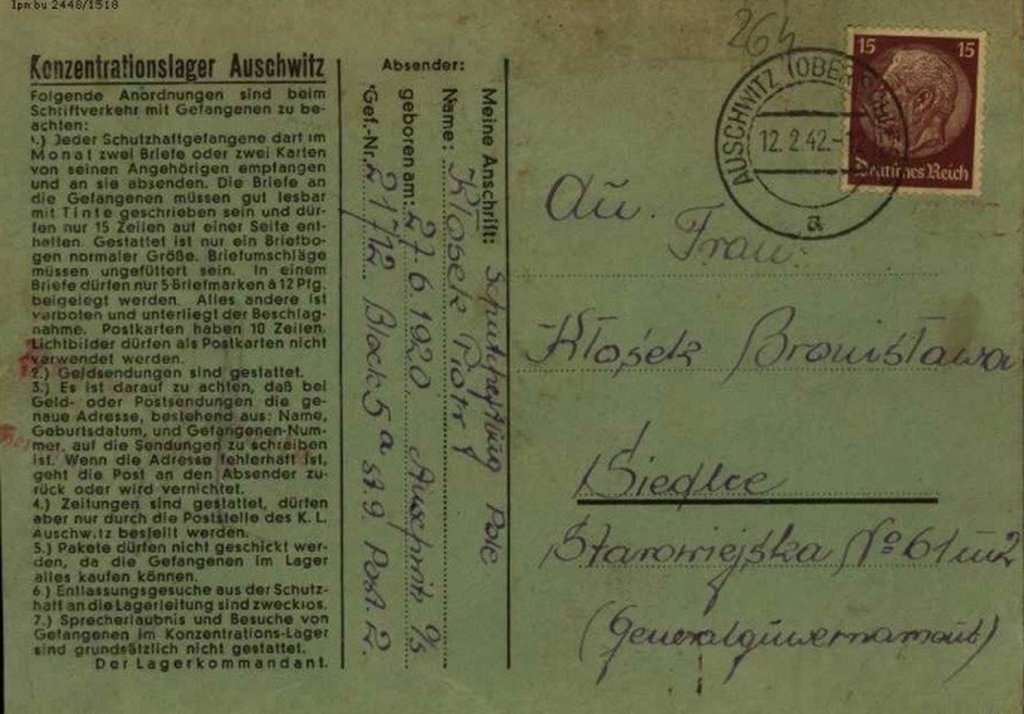 Ipn bu 2448/1518
Konzentrationslager Auschwitz
Folgende Anordnungen sind beim
Schriftverkehr mit Gefangenen zu be-
achten:
1.) Jeder Schutzhaftgefangene darf im
Monat zwei Briefe oder zwei Karten
von seinen Angehörigen empfangen
und an sie absenden. Die Briefe an
die Gefangenen müssen gut lesbar
mit Tinte geschrieben sein und dür-
fen nur 15 Zeilen auf einer Seite ent-
halten. Gestattet ist nur ein Briefbo-
gen normaler Größe. Briefumschläge
müssen ungefüttert sein. In einem
Briefe dürfen nur 5 Briefmarken à 12 Pfg.
beigelegt werden. Alles andere ist
verboten und unterliegt der Beschlag-
nahme. Postkarten haben 10 Zeilen.
Lichtbilder dürfen als Postkarten nicht
verwendet werden.
2.) Geldsendungen sind gestattet.
3.) Es ist darauf zu achten, daß bei
Geld- oder Postsendungen die ge-
naue Adresse, bestehend aus: Name,
Geburtsdatum, und Gefangenen-Num-
mer, auf die Sendungen zu schreiben
ist. Wenn die Adresse fehlerhaft ist,
geht die Post an den Absender zu-
rück oder wird vernichtet.
4.) Zeitungen sind gestattet, dürfen
aber nur durch die Poststelle des K. L.
Auschwitz bestellt werden.
5.) Pakete dürfen nicht geschickt wer-
den, da die Gefangenen im Lager
alles kaufen können.
6.) Entlassungsgesuche aus der Schutz-
haft an die Lagerleitung sind zwecklos.
7.) Sprecherlaubnis und Besuche von
Gefangenen im Konzentrations-Lager
sind grundsätzlich nicht gestattet.
Der Lagerkommandant.
Absender:
Meine Anschrift: Schutzhäftling Pole
Name: Kłosek Piotr
geboren am: 27.6.1920. Auschwitz
Gef.-Nr. 21712 Block 5a St. 9. Post 2.
264
AUSCHWITZ (OBERSCHLES)
12.2.42.-
a
15 15
Deutsches Reich
An. Frau
Kłosek Bronisława
Siedlce
Starowiejska No 61 m 2
(Generalguwernament)